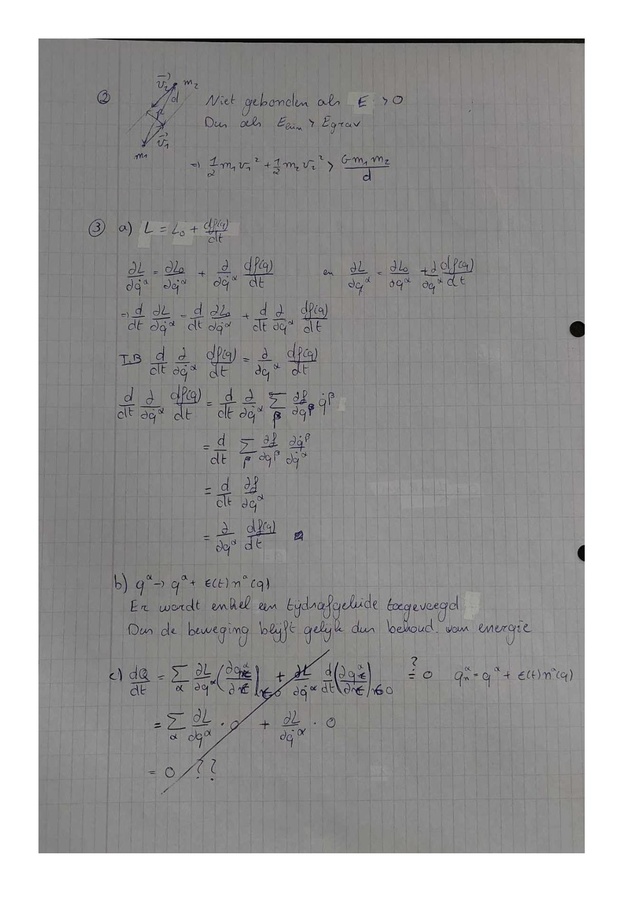 ② v⃗₂ m₂ d Niet gebonden als E > 0
r v⃗₁ m₁ Dus als E_kin > E_grav
⇒ 1/2 m₁v₁² + 1/2 m₂v₂² > G m₁ m₂/d
③ a) L = L₀ + df(q)/dt
∂L/∂q̇^α = ∂L₀/∂q̇^α + ∂/∂q̇^α df(q)/dt en ∂L/∂q^α = ∂L₀/∂q^α + ∂/∂q^α df(q)/dt
⇒ d/dt ∂L/∂q̇^α = d/dt ∂L₀/∂q̇^α + d/dt ∂/∂q̇^α df(q)/dt
T.B d/dt ∂/∂q̇^α df(q)/dt = ∂/∂q^α df(q)/dt
d/dt ∂/∂q̇^α df(q)/dt = d/dt ∂/∂q̇^α Σ_β ∂f/∂q^β q̇^β
= d/dt Σ_β ∂f/∂q^β ∂q̇^β/∂q̇^α
= d/dt ∂f/∂q^α
= ∂/∂q^α df(q)/dt
b) q^α → q^α + ε(t) n^α(q)
Er wordt enkel een tijdsafgeleide toegevoegd
Dus de beweging blijft gelijk dus behoud van energie
c) dQ/dt = Σ_α ∂L/∂q^α (∂q^α/∂ε)|ε=0 + ∂L/∂q̇^α d/dt (∂q^α/∂ε)|ε=0 ?= 0 q^α_n = q^α + ε(t) n^α(q)
= Σ_α ∂L/∂q^α · 0 + ∂L/∂q̇^α · 0
= 0 ??